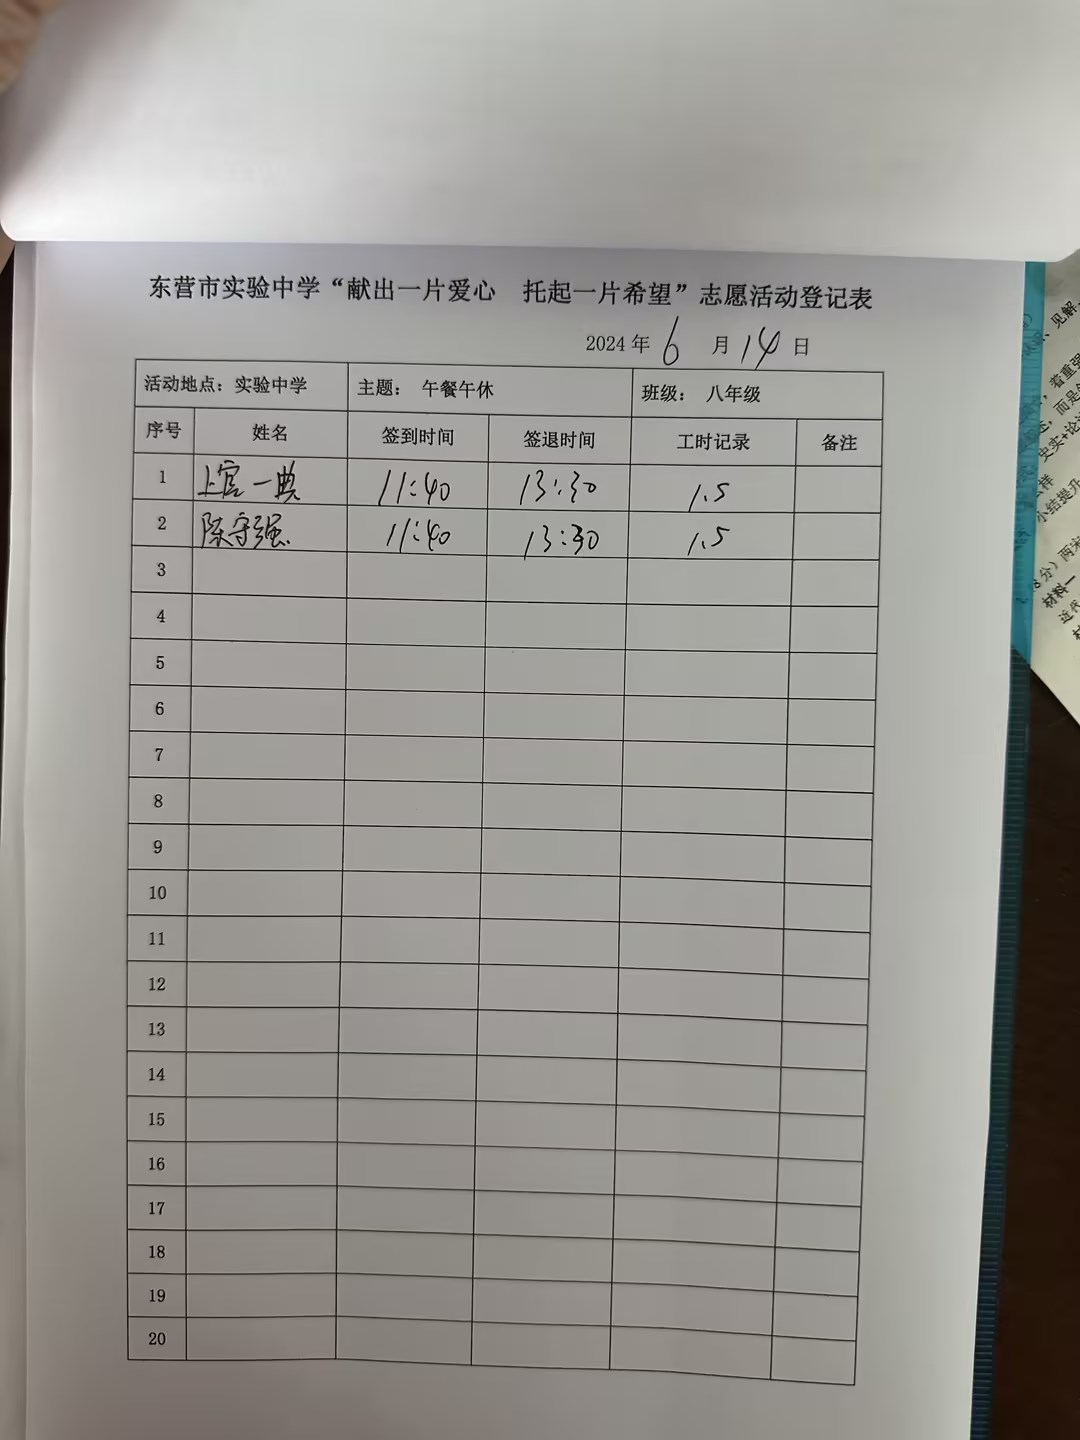 东营市实验中学“献出一片爱心 托起一片希望”志愿活动登记表
2024 年 6 月 14 日
活动地点：实验中学 主题： 午餐午休 班级： 八年级
序号 姓名 签到时间 签退时间 工时记录 备注
1 上官一典 11:40 13:30 1.5
2 陈守强 11:40 13:30 1.5
3
4
5
6
7
8
9
10
11
12
13
14
15
16
17
18
19
20
见解
着重强
而是
史实+论
小结提升
8分）两宋
材料一
近代